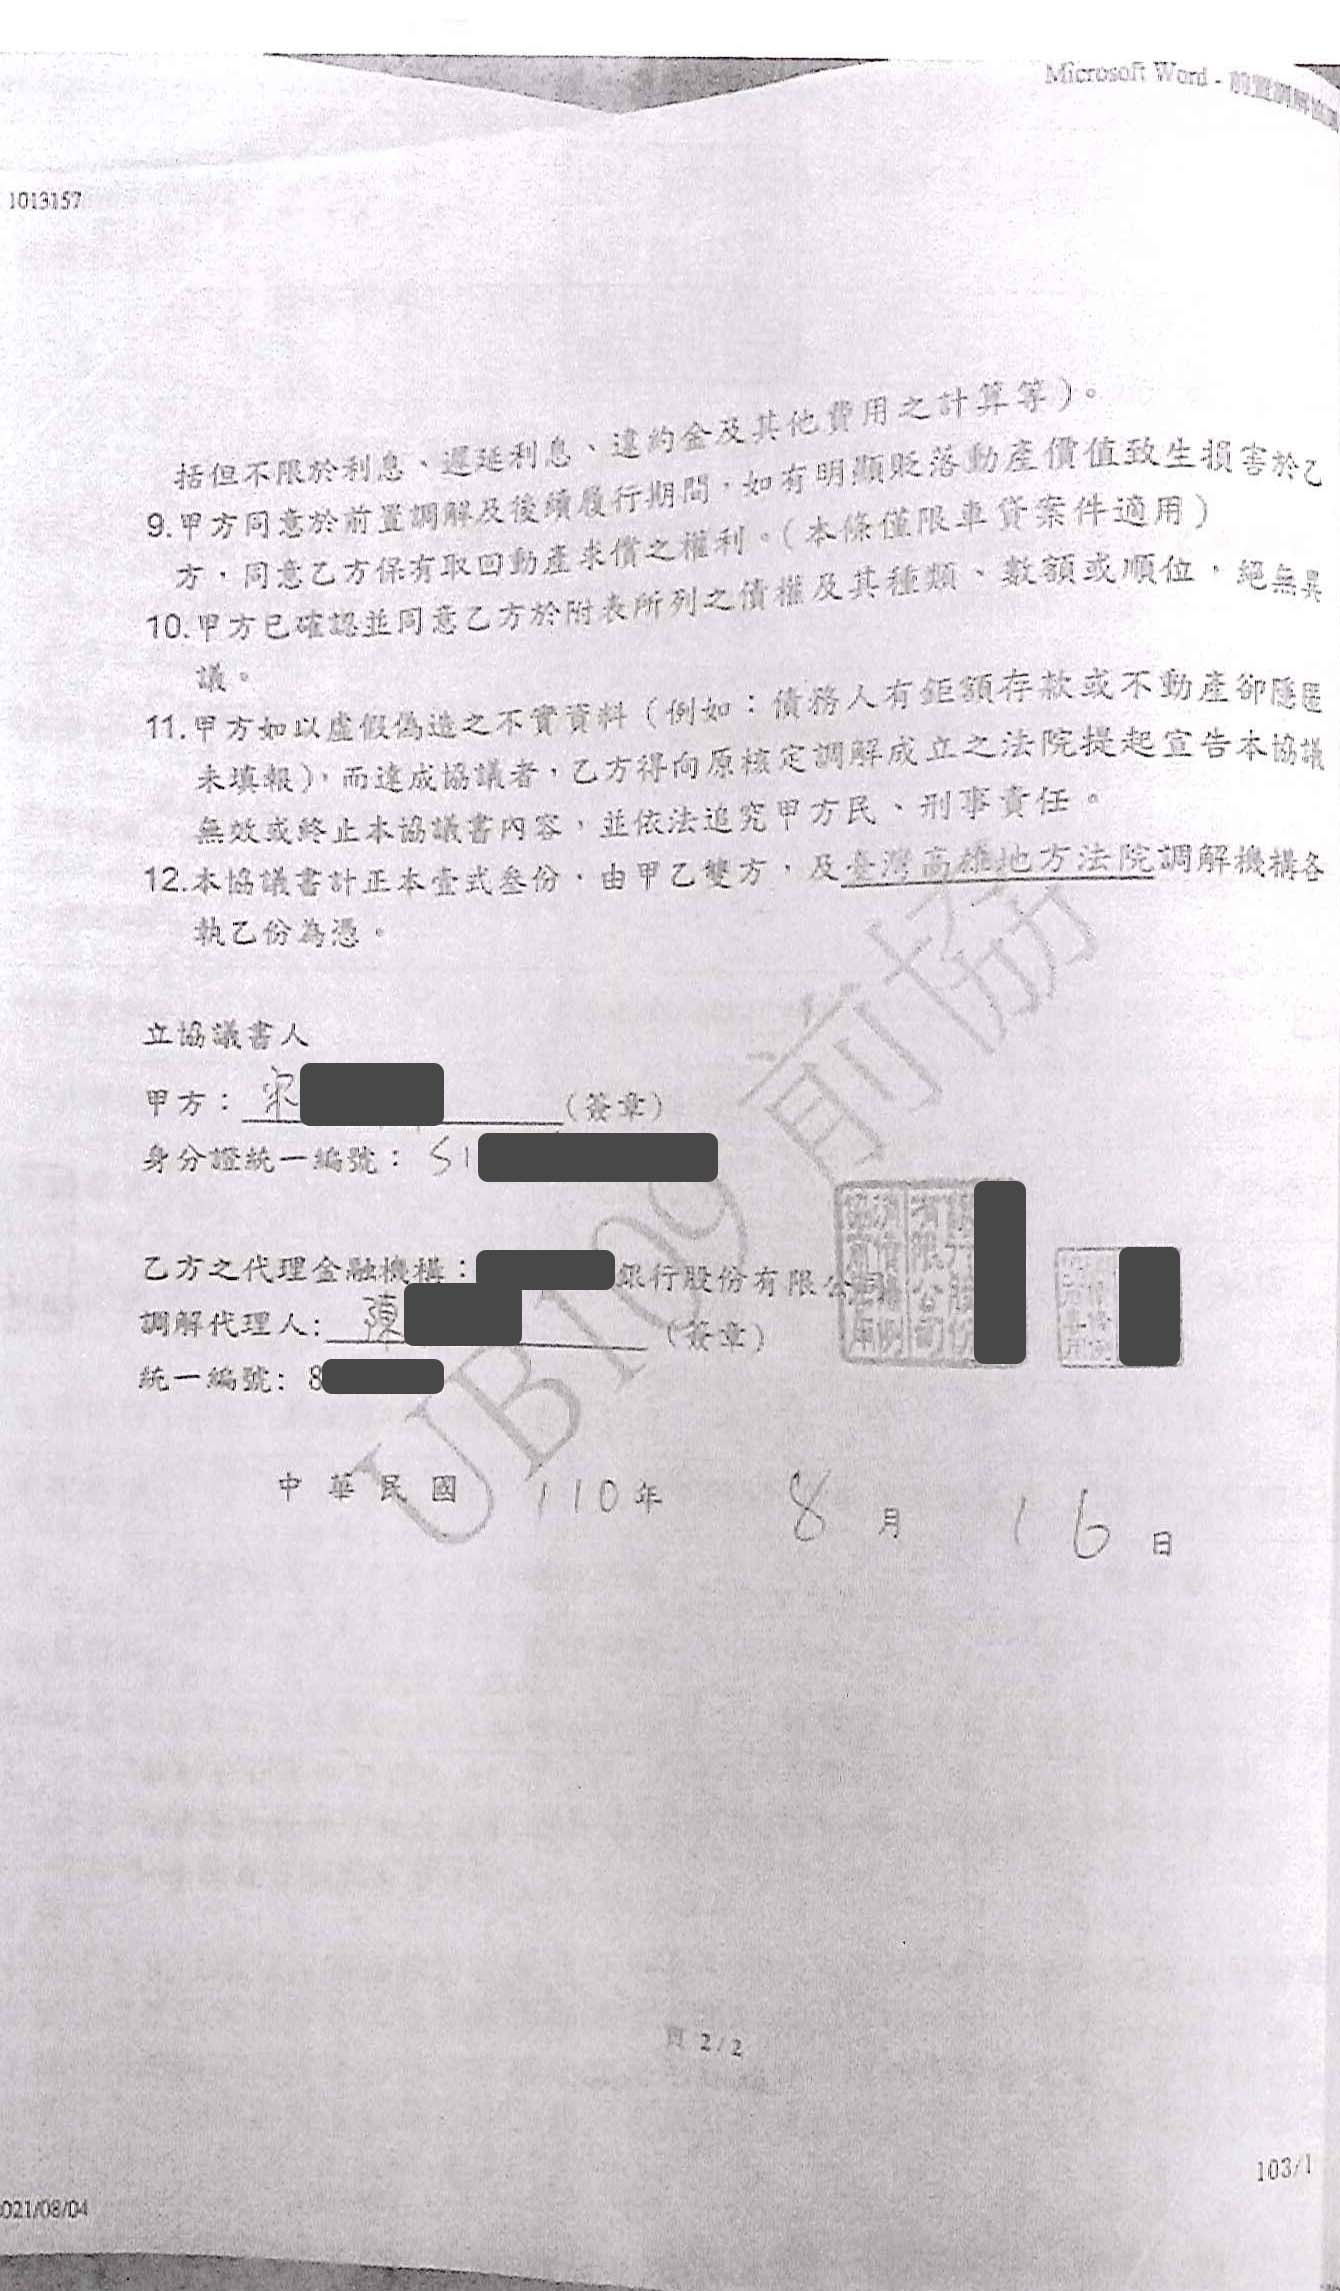 Microsoft Word - 前置調解協議
1013157
括但不限於利息、遲延利息、違約金及其他費用之計算等)。
9.甲方同意於前置調解及後續履行期間,如有明顯貶落動產價值致生損害於乙
方,同意乙方保有取回動產求償之權利。(本條僅限車貸案件適用)
10.甲方已確認並同意乙方於附表所列之債權及其種類、數額或順位,絕無異
議。
11.甲方如以虛假偽造之不實資料(例如:債務人有鉅額存款或不動產卻隱匿
未填報),而達成協議者,乙方得向原核定調解成立之法院提起宣告本協議
無效或終止本協議書內容,並依法追究甲方民、刑事責任。
12.本協議書計正本壹式叁份,由甲乙雙方,及臺灣高雄地方法院調解機構各
執乙份為憑。
立協議書人
甲方:宋 (簽章)
身分證統一編號:S1
乙方之代理金融機構: 銀行股份有限公司
調解代理人:陳 (簽章)
統一編號:8
中華民國 110年 8月 16日
UB109前協
頁 2/2
103/1
021/08/04